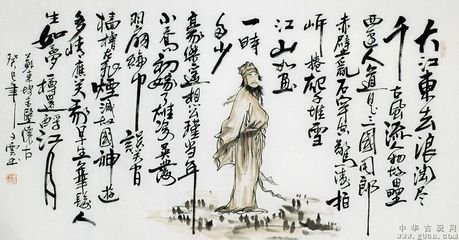 大江東去浪淘尽
千古風流人物故壘
西邊人道是三國周郎
赤壁亂石穿空驚濤拍
岸捲起千堆雪
江山如画
一時
多少
豪傑遥想公瑾當年
小喬初嫁了雄姿英發
羽扇綸巾談笑間
檣櫓灰飛煙滅故國神遊
多情應笑我早生華髮人
生如夢一樽還酹江月
蘇東坡赤壁懷古
癸巳年
中华古玩网
www.gucn.com